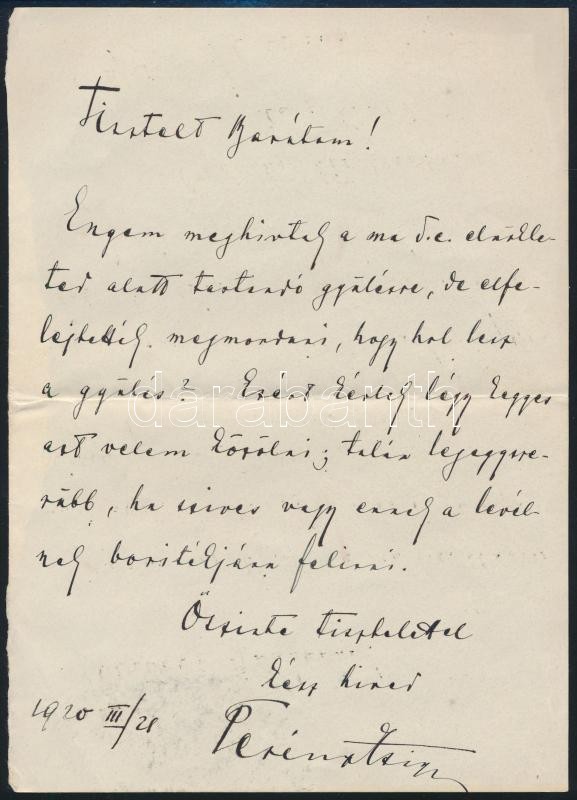 Tisztelt Barátom!
Engem meghívtál a ma d. e. elnökle-
ted alatt tartandó gyűlésre, de elfe-
lejtettél megmondani, hogy hol lesz
a gyűlés? Ezért kérlek légy kegyes
azt velem közölni; talán legegysze-
rübb, ha szives vagy ennek a levél-
nek boritékjára felirni.
Őszinte tisztelettel
kész hived
1920 III/21
darabanth